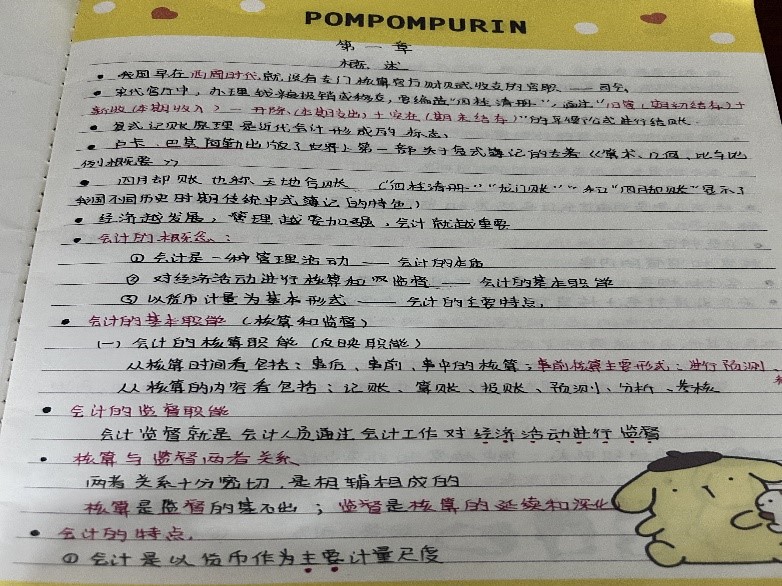 POMPOMPURIN
第一章
概述
• 我国早在西周时代就设有专门核算官厅财赋收支的官职——司会
• 宋代官厅中，办理钱粮报销或移交，要编造"四柱清册"，通过"旧管(期初结存)+
新收(本期收入)=开除(本期支出)+实在(期末结存)"的平衡公式进行结账.
• 复式记账原理是近代会计形成的标志.
• 卢卡.巴其阿勒出版了世界上第一部关于复式簿记的专著《《算术、几何、比与比
例概要》》
• 四脚账也称天地合账 ("四柱清册""龙门账""和"四脚账"显示了
我国不同历史时期传统中式簿记的特色)
• 经济越发展，管理越要加强，会计就越重要
• 会计的概念：
① 会计是一种管理活动——会计的本质
② 对经济活动进行核算和监督——会计的基本职能
③ 以货币计量为基本形式——会计的主要特点.
• 会计的基本职能(核算和监督)
(一) 会计的核算职能(反映职能)
从核算时间看包括：事后、事前、事中的核算；事前核算主要形式：进行预测、
从核算的内容看包括：记账、算账、报账、预测、分析、考核
• 会计的监督职能
会计监督就是会计人员通过会计工作对经济活动进行监督
• 核算与监督两者关系
两者关系十分密切，是相辅相成的
核算是监督的基础；监督是核算的延续和深化
• 会计的特点.
① 会计是以货币作为主要计量尺度